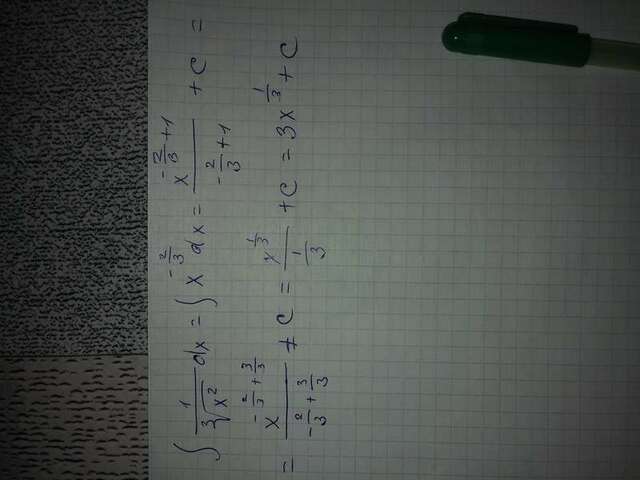 ∫ 1/∛x² dx = ∫ x^(-2/3) dx = x^(-2/3+1)/(-2/3+1) + C =
= x^(-2/3+3/3)/(-2/3+3/3) + C = x^(1/3)/(1/3) + C = 3x^(1/3) + C